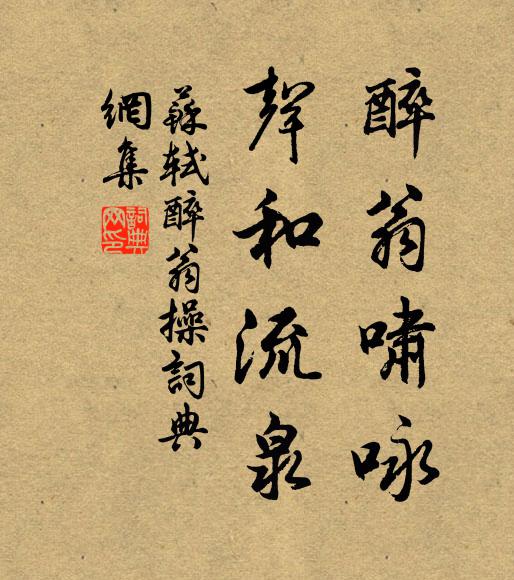 醉翁嘯咏
聲和流泉
蘇軾醉翁操詞典
網集
詞典網印